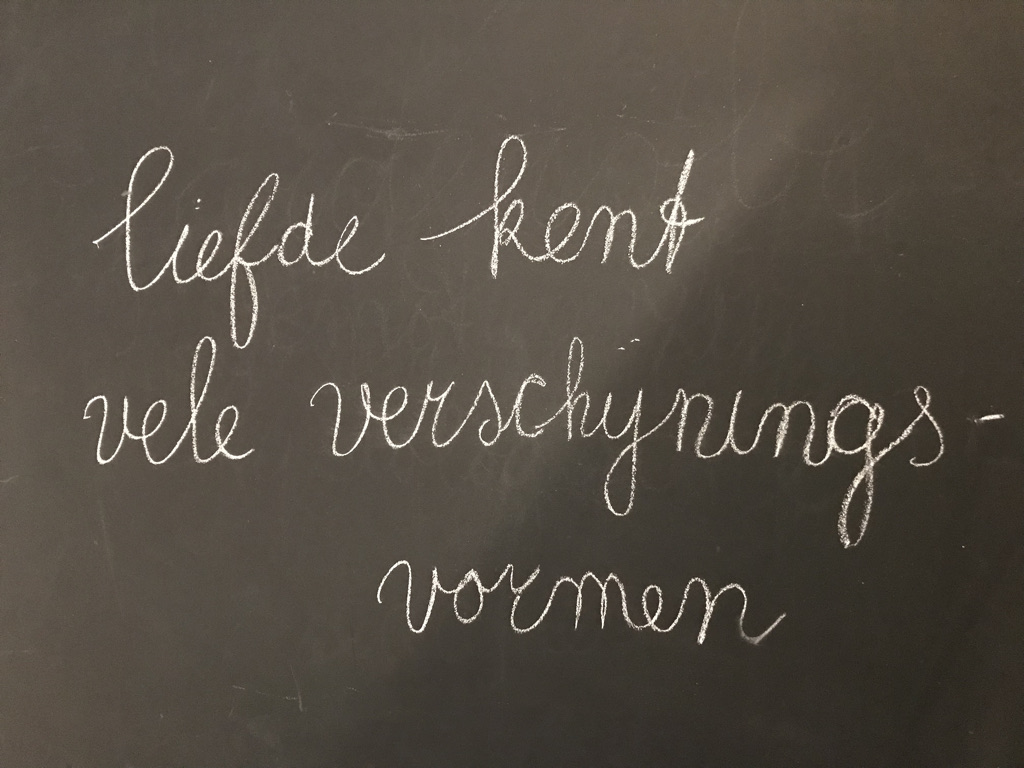 liefde kent
vele verschijnings-
vormen